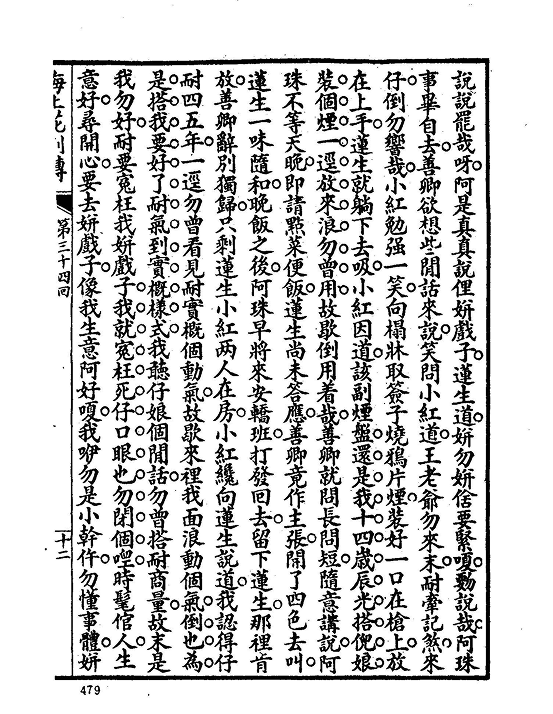 說說罷哉呀阿是真真說俚姘戲子蓮生道姘勿姘俗要緊嗄勸說哉阿珠
事畢自去善卿欲想些閒話來說笑問小紅道王老爺勿來末耐牽記煞來
仔倒勿響哉小紅勉强一笑向榻牀取簽子燒鴉片煙裝好一口在槍上放
在上手蓮生就躺下去吸小紅因道該副煙盤還是我十四歲辰光搭倪娘
裝個煙一逕放來浪勿曾用故歇倒用着哉善卿就問長問短隨意講說阿
珠不等天晚即請點菜便飯蓮生尚未答應善卿竟作主張開了四色去叫
蓮生一味隨和晚飯之後阿珠早將來安轎班打發回去留下蓮生那裡肯
放善卿辭別獨歸只剩蓮生小紅兩人在房小紅纔向蓮生說道我認得仔
耐四五年一逕勿曾看見耐實概個動氣故歇來裡我面浪動個氣倒也為
是搭我要好了耐氣到實概樣式我聽仔娘個閒話勿曾搭耐商量故末是
我勿好耐要冤枉我姘戲子我就冤枉死仔口眼也勿閉個哩時髦倌人生
意好尋開心要去姘戲子像我生意阿好嗄我咿勿是小幹仵勿懂事體姘
海上花列傳
第三十四回
十二
479